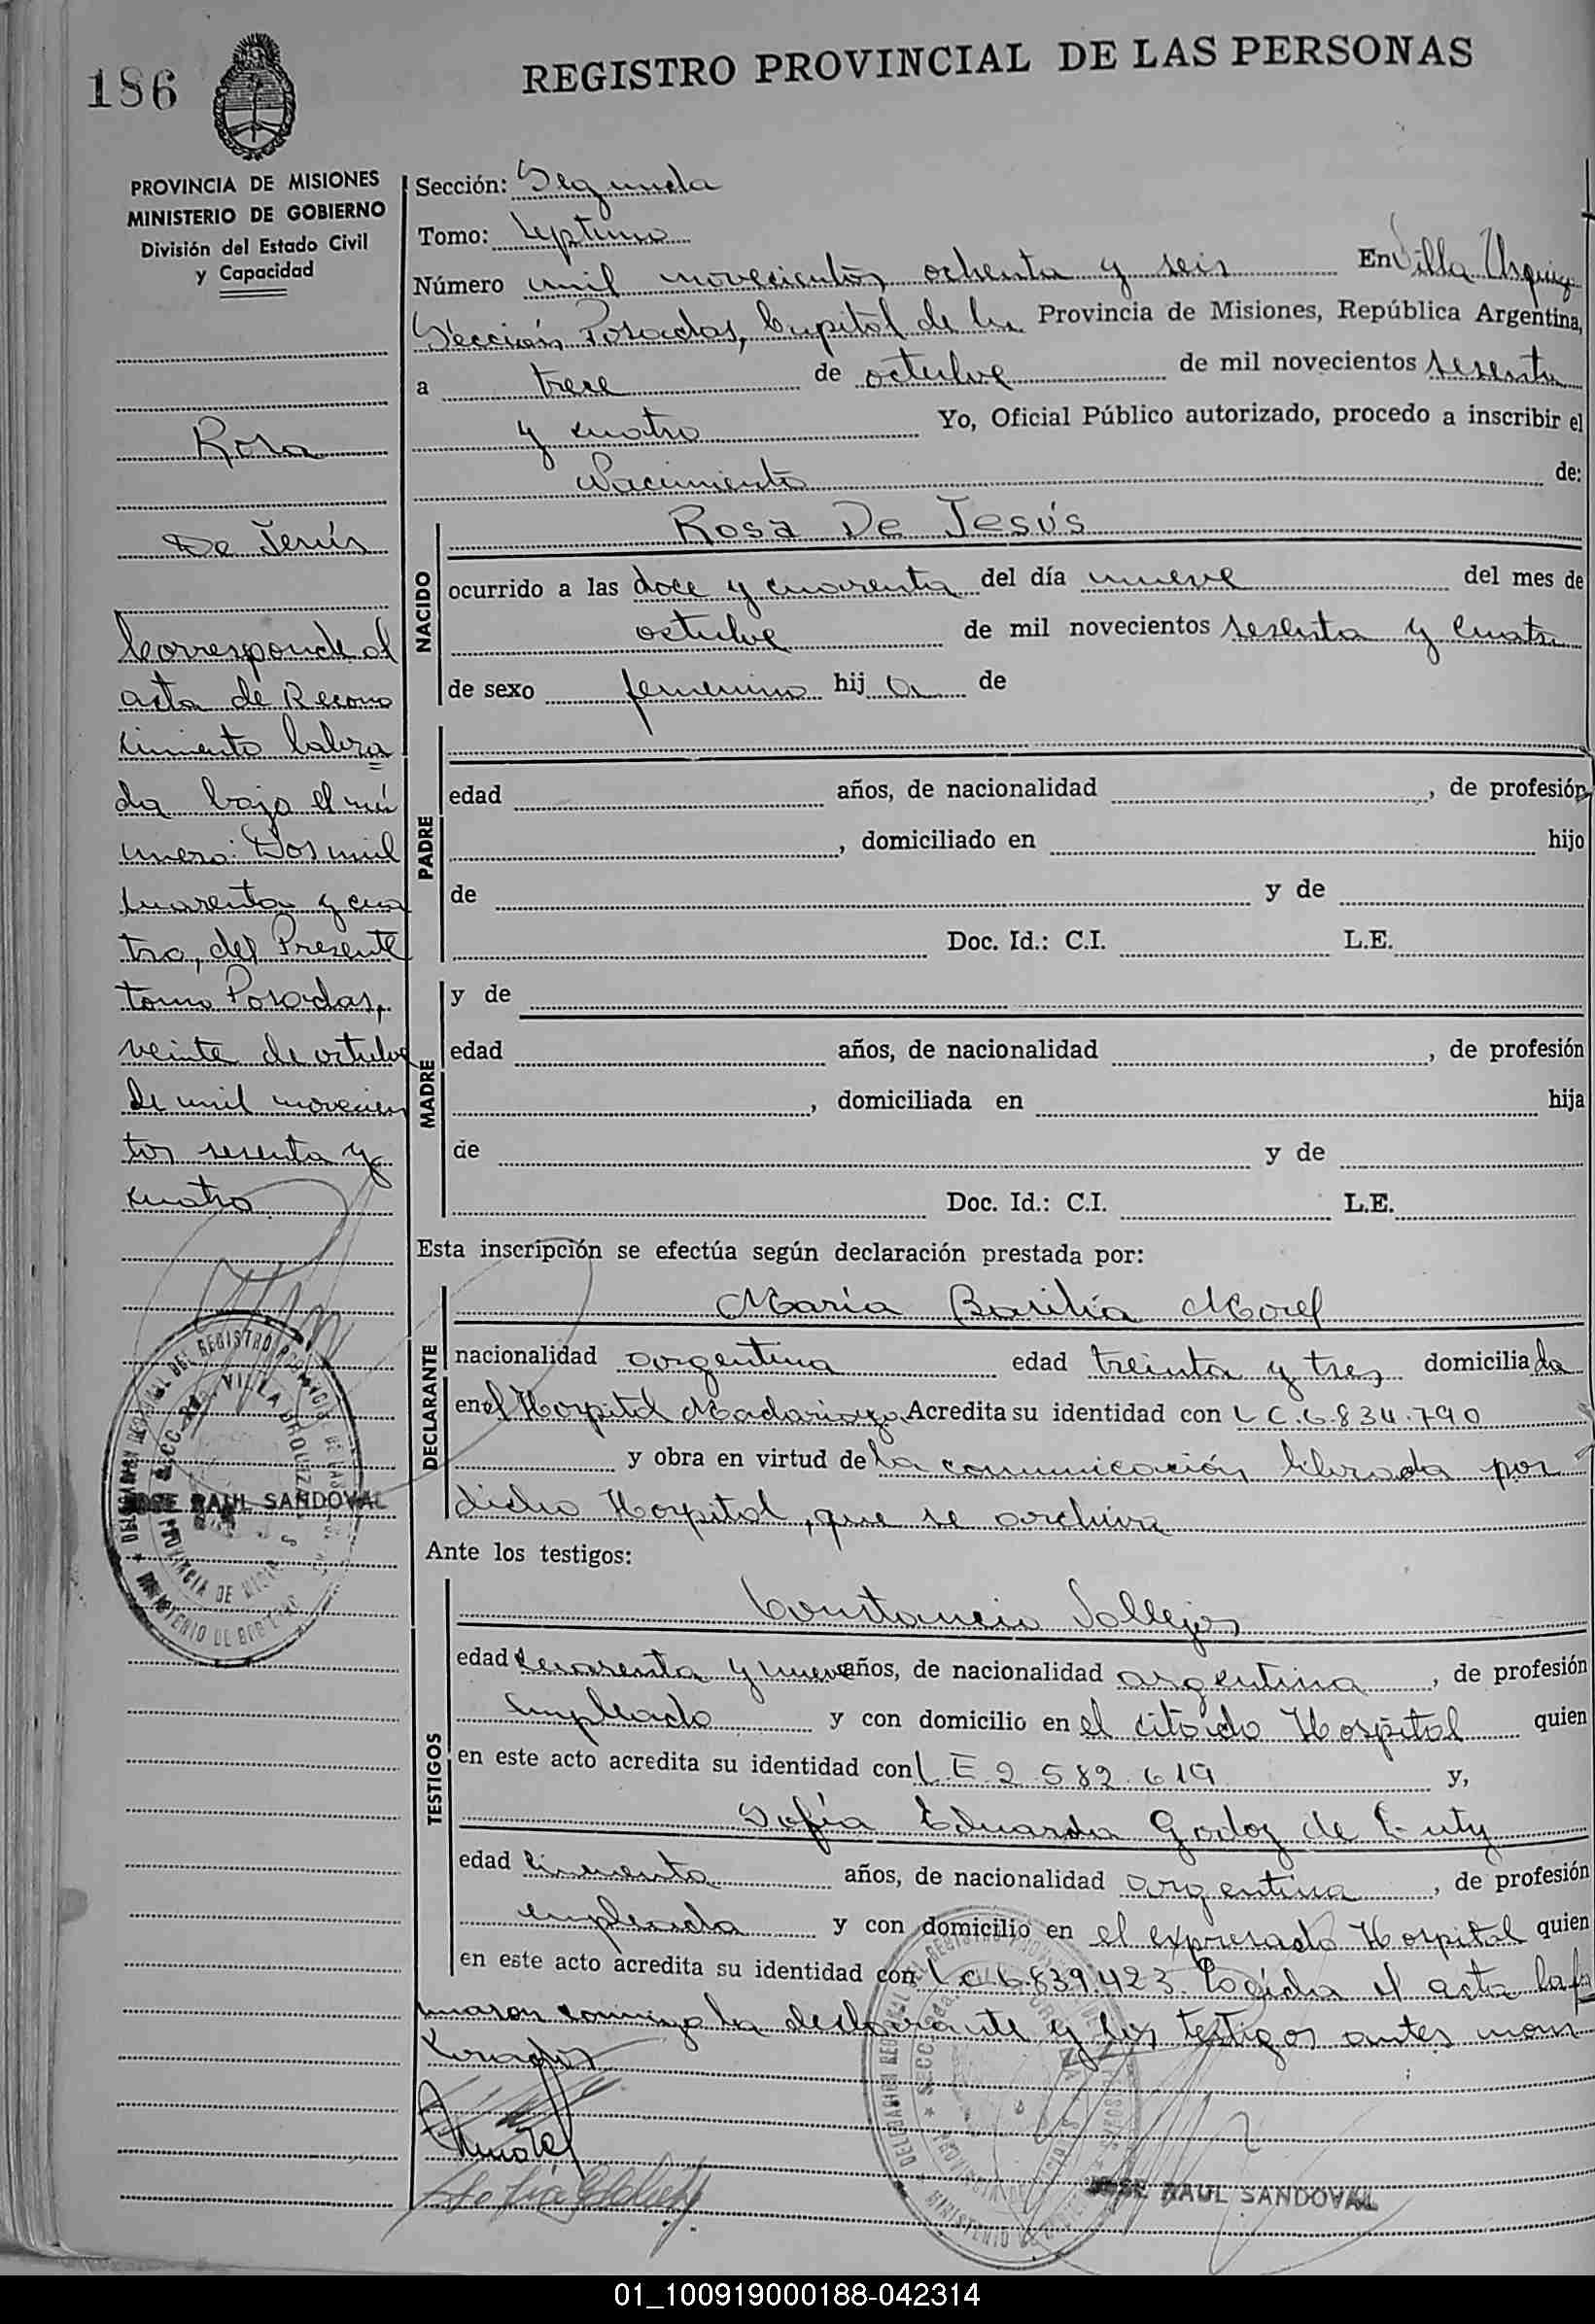 186
REGISTRO PROVINCIAL DE LAS PERSONAS
PROVINCIA DE MISIONES
MINISTERIO DE GOBIERNO
División del Estado Civil
y Capacidad
Rosa
De Jesús
Corresponde al
acta de Recono
cimiento labra
da bajo el nú
mero: Dos mil
cuarenta y cua
tro, del Presente
tomo Posadas,
veinte de octubre
de mil novecien
tos sesenta y
cuatro
JOSE RAUL SANDOVAL
Sección: Segunda
Tomo: Septimo
Número mil novecientos ochenta y seis En Villa Urquiza
Sección Posadas, Capital de la Provincia de Misiones, República Argentina,
a trece de octubre de mil novecientos sesenta
y cuatro Yo, Oficial Público autorizado, procedo a inscribir el
Nacimiento de:
NACIDO
Rosa De Jesús
ocurrido a las doce y cuarenta del día nueve del mes de
octubre de mil novecientos sesenta y cuatro
de sexo femenino hij a de
PADRE
edad años, de nacionalidad , de profesión
, domiciliado en hijo
de y de
Doc. Id.: C.I. L.E.
MADRE
y de
edad años, de nacionalidad , de profesión
, domiciliada en hija
de y de
Doc. Id.: C.I. L.E.
Esta inscripción se efectúa según declaración prestada por:
DECLARANTE
María Basilia Morel
nacionalidad argentina edad treinta y tres domicilia da
en el Hospital Madariaga. Acredita su identidad con L C. 6.834.790
y obra en virtud de la comunicación librada por
dicho Hospital, que se archiva
Ante los testigos:
TESTIGOS
Constancio Vallejos
edad cuarenta y nueve años, de nacionalidad argentina, de profesión
empleado y con domicilio en el citado Hospital quien
en este acto acredita su identidad con L E 2.582.619 y,
Sofía Eduarda Godoy de
edad cincuenta años, de nacionalidad argentina, de profesión
empleada y con domicilio en el expresado Hospital quien
en este acto acredita su identidad con L C 6.839.423. Leída el acta la fir
maron conmigo la declarante y los testigos antes men
cionados
JOSE RAUL SANDOVAL
01_100919000188-042314